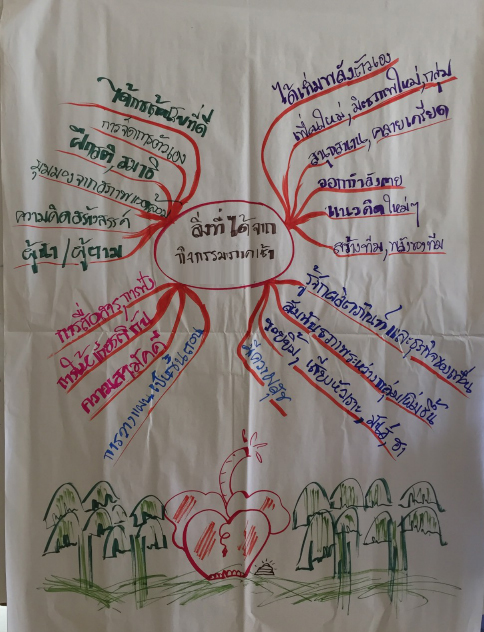 สิ่งที่ได้จาก
กิจกรรมภาคเช้า
ได้เติมพลังตัวเอง
เพื่อนใหม่, มิตรภาพใหม่, กลุ่ม
สนุกสนาน, คลายเครียด
ออกกำลังกาย
แนวคิดใหม่ๆ
สร้างทีม, พลังของทีม
รู้จักผลิตภัณฑ์และธุรกิจของเพื่อน
สัมพันธภาพระหว่างกลุ่มเพิ่มขึ้น
รอยยิ้ม, เสียงหัวเราะ,
มีความสุข
การจัดการตัวเอง
ฝึกสติ, สมาธิ
ความคิดสร้างสรรค์
ผู้นำ/ผู้ตาม
การสื่อสาร, การฟัง
การให้เกียรติกัน
ความสามัคคี
การวางแผนเป็นขั้นตอน